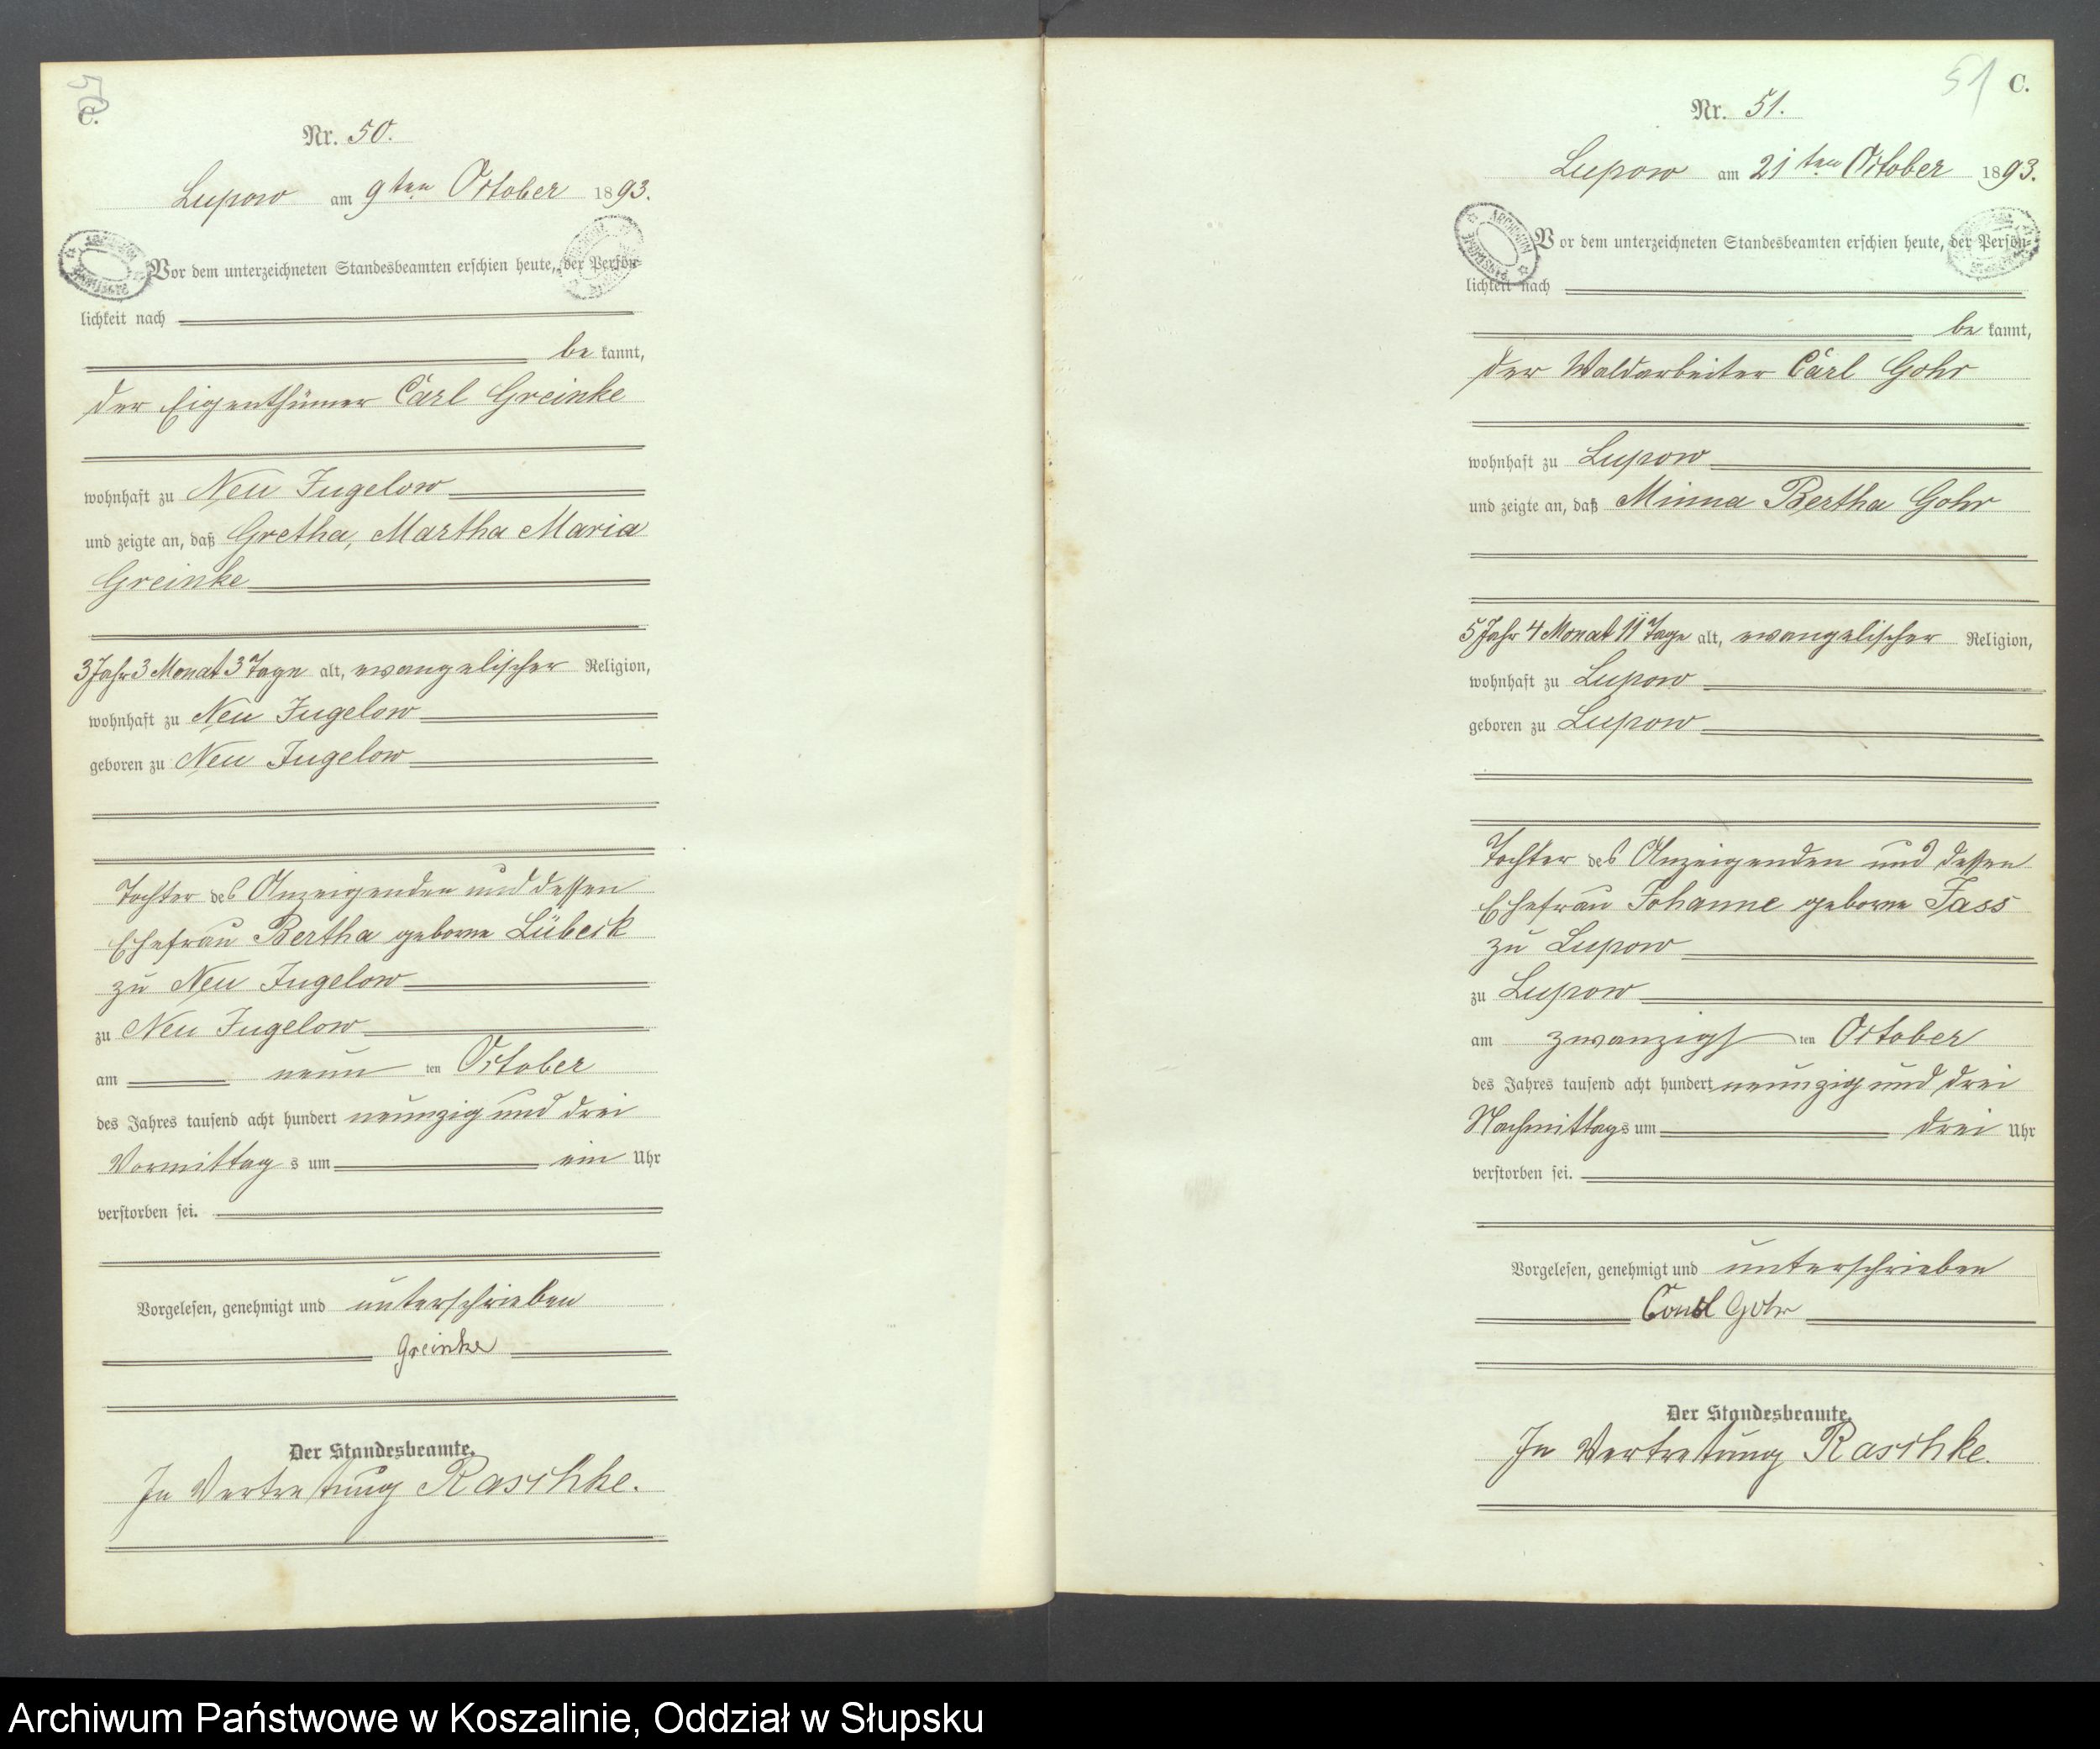 50
C.
Nr. 50.
Lupow am 9ten October 1893.
Vor dem unterzeichneten Standesbeamten erschien heute, der Persön-
lichkeit nach
be kannt,
der Eigenthümer Carl Greinke
wohnhaft zu Neu Jugelow
und zeigte an, daß Gretha, Martha Maria
Greinke
3 Jahr 3 Monat 3 Tage alt, evangelischer Religion,
wohnhaft zu Neu Jugelow
geboren zu Neu Jugelow
Tochter des Anzeigenden und dessen
Ehefrau Bertha geborne Lübeck
zu Neu Jugelow
zu Neu Jugelow
am neun ten October
des Jahres tausend acht hundert neunzig und drei
Vormittag s um ein Uhr
verstorben sei.
Vorgelesen, genehmigt und unterschrieben
Greinke
Der Standesbeamte.
In Vertretung Raschke.
51 C.
Nr. 51.
Lupow am 21ten October 1893.
Vor dem unterzeichneten Standesbeamten erschien heute, der Persön-
lichkeit nach
be kannt,
der Waldarbeiter Carl Gohr
wohnhaft zu Lupow
und zeigte an, daß Minna Bertha Gohr
5 Jahr 4 Monat 11 Tage alt, evangelischer Religion,
wohnhaft zu Lupow
geboren zu Lupow
Tochter des Anzeigenden und dessen
Ehefrau Johanne geborne Jass
zu Lupow
zu Lupow
am zwanzigs ten October
des Jahres tausend acht hundert neunzig und drei
Nachmittags um drei Uhr
verstorben sei.
Vorgelesen, genehmigt und unterschrieben
Gohr
Der Standesbeamte.
In Vertretung Raschke.
Archiwum Państwowe w Koszalinie, Oddział w Słupsku